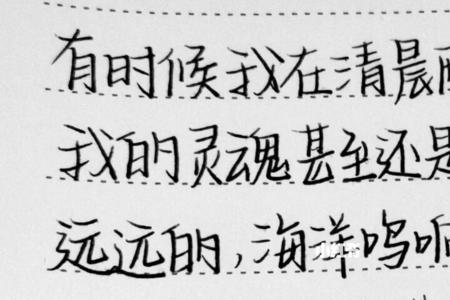 有时候我在清晨
我的灵魂甚至还是
远远的，海洋鸣响